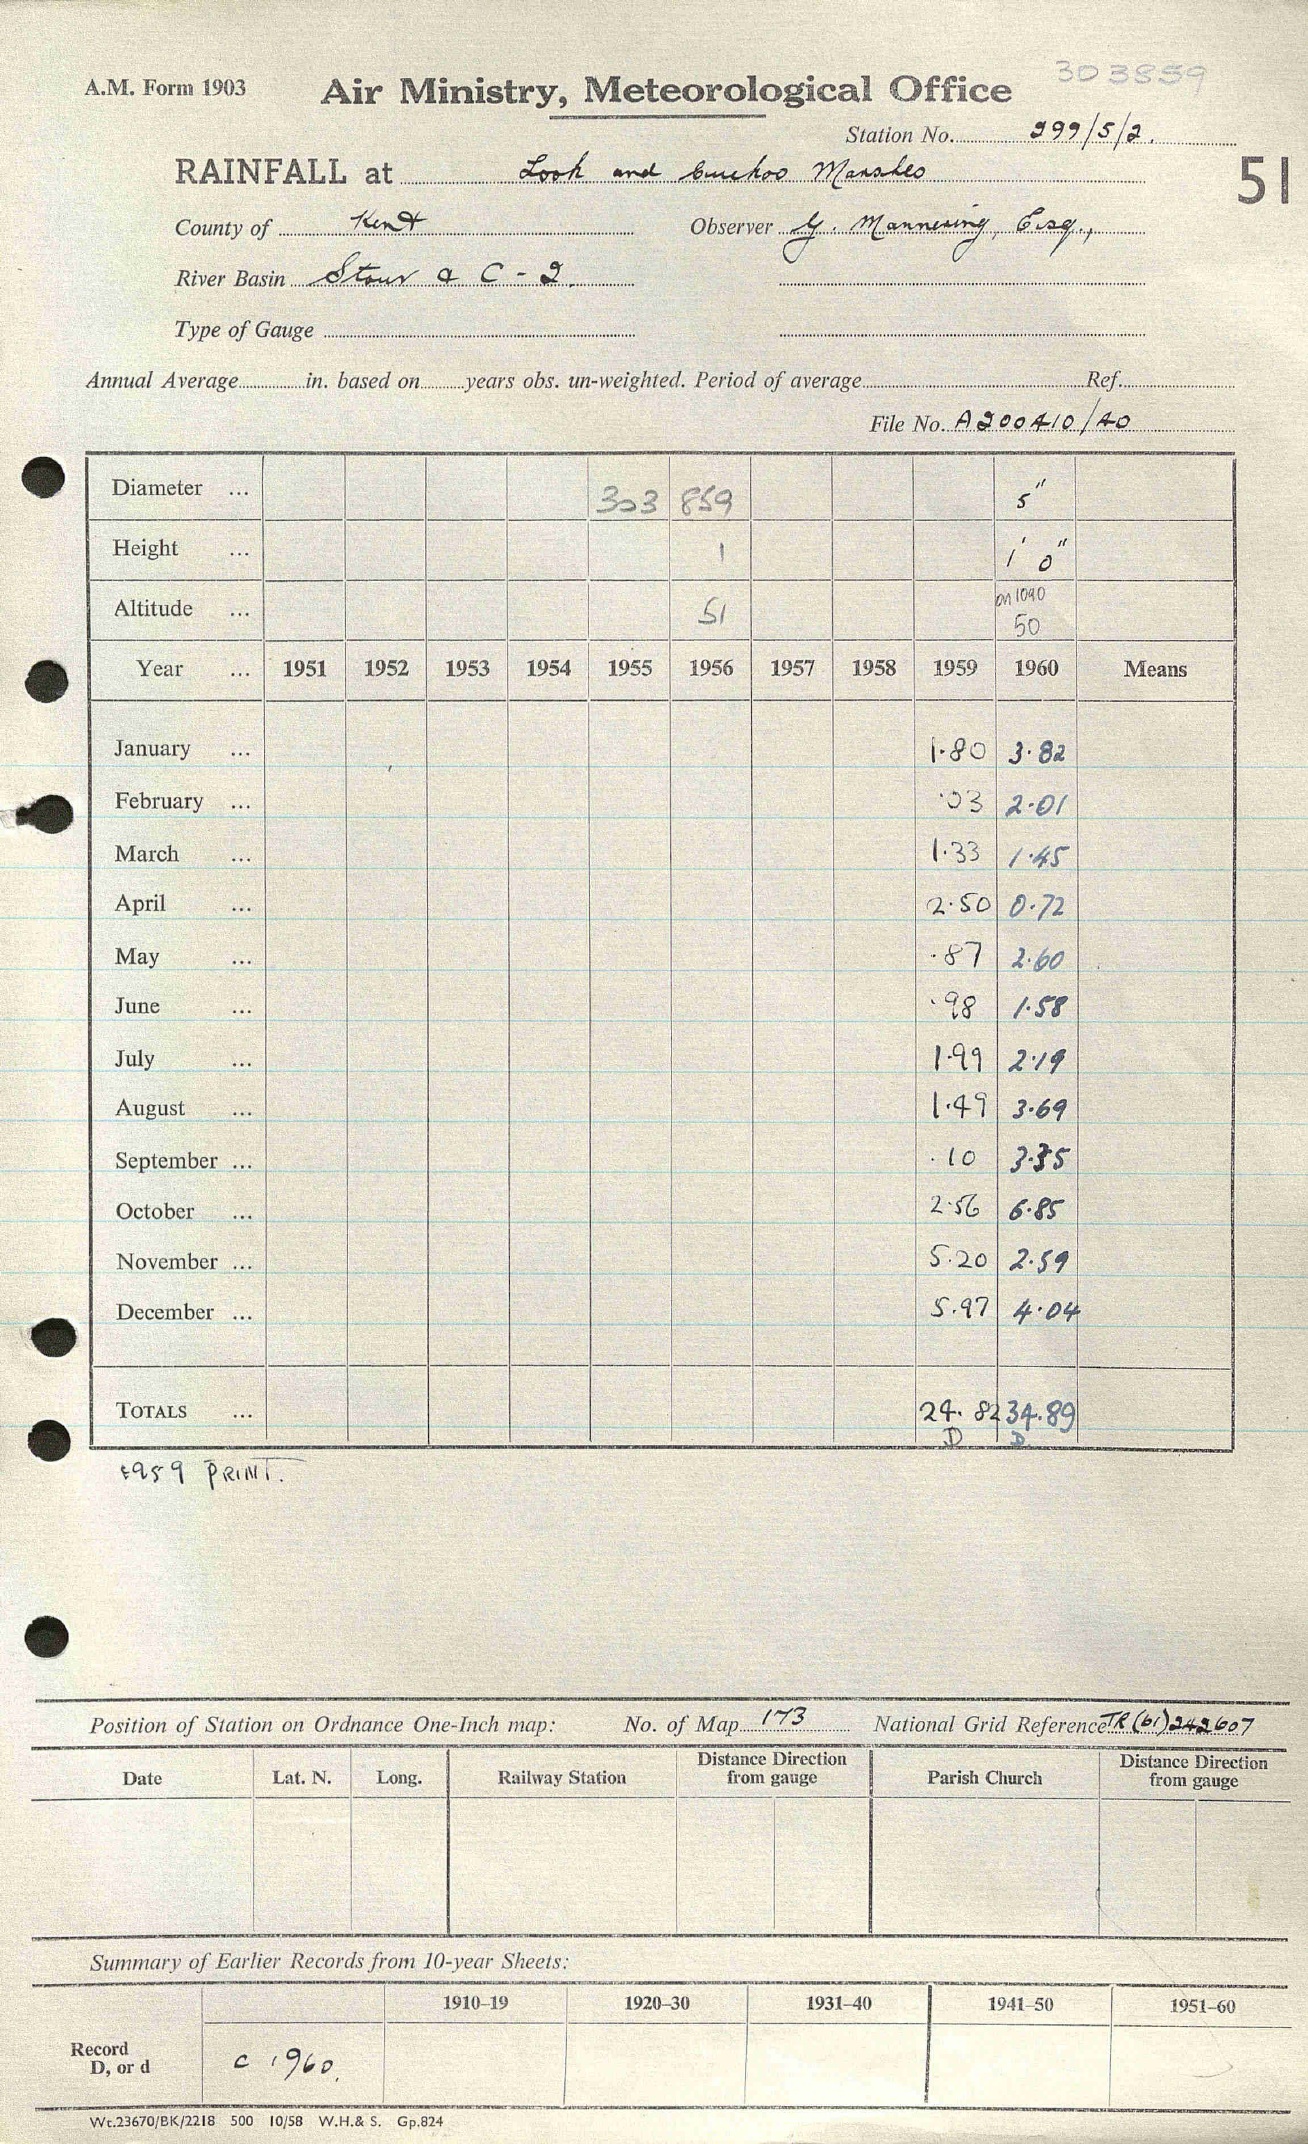 303859
A.M. Form 1903 Air Ministry, Meteorological Office
Station No. 299/5/2.
RAINFALL at Look and Cuckoo Marshes
51
County of Kent Observer G. Mannering, Esq.,
River Basin Stour & C - 2.
Type of Gauge
Annual Average in. based on years obs. un-weighted. Period of average Ref.
File No. A200410/40
Diameter ... 303 859 5"
Height ... 1 1' 0"
Altitude ... 51 50
Year ... 1951 1952 1953 1954 1955 1956 1957 1958 1959 1960 Means
January ... 1.80 3.82
February ... .03 2.01
March ... 1.33 1.45
April ... 2.50 0.72
May ... .87 2.60
June ... .98 1.58
July ... 1.99 2.19
August ... 1.49 3.69
September ... .10 3.35
October ... 2.56 6.85
November ... 5.20 2.59
December ... 5.97 4.04
TOTALS ... 24.82 34.89
D D
1959 PRINT.
Position of Station on Ordnance One-Inch map: No. of Map 173 National Grid Reference TR(61)242607
Date Lat. N. Long. Railway Station Distance Direction from gauge Parish Church Distance Direction from gauge
Summary of Earlier Records from 10-year Sheets:
1910–19 1920–30 1931–40 1941–50 1951–60
Record
D, or d c 1960.
Wt.23670/BK/2218 500 10/58 W.H.& S. Gp.824